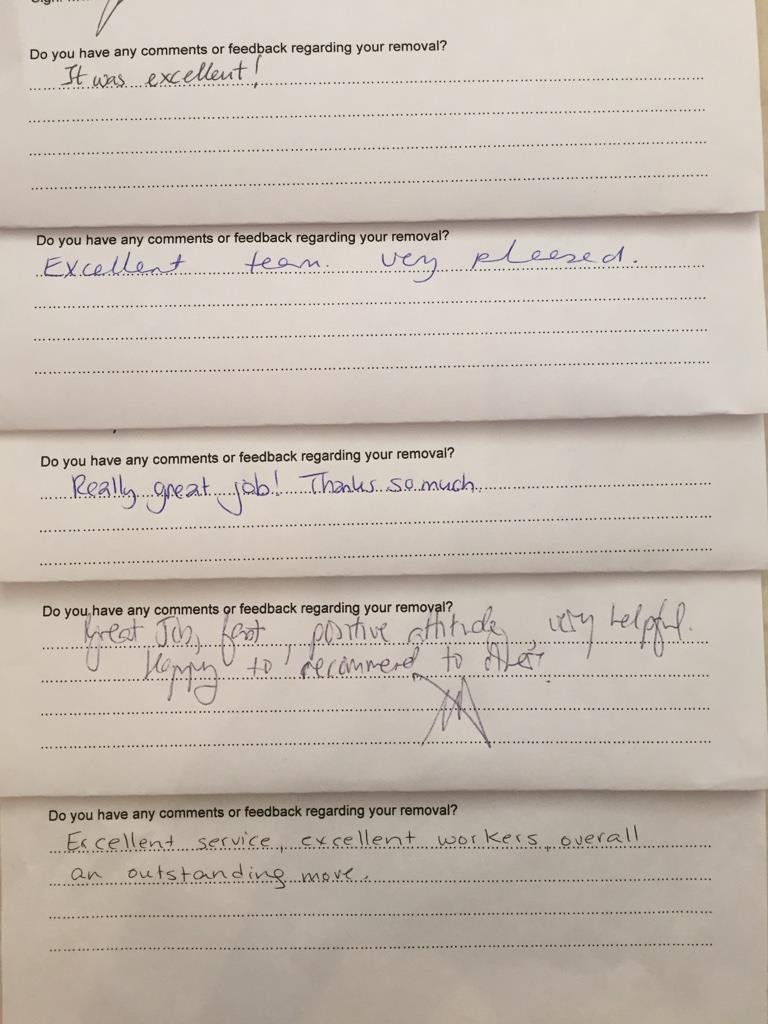 Do you have any comments or feedback regarding your removal?
It was excellent!
Do you have any comments or feedback regarding your removal?
Excellent team. very pleased.
Do you have any comments or feedback regarding your removal?
Really great job! Thanks so much.
Do you have any comments or feedback regarding your removal?
Great Job, fast, positive attitude, very helpful.
Happy to recommend to others.
Do you have any comments or feedback regarding your removal?
Excellent service, excellent workers, overall
an outstanding move.